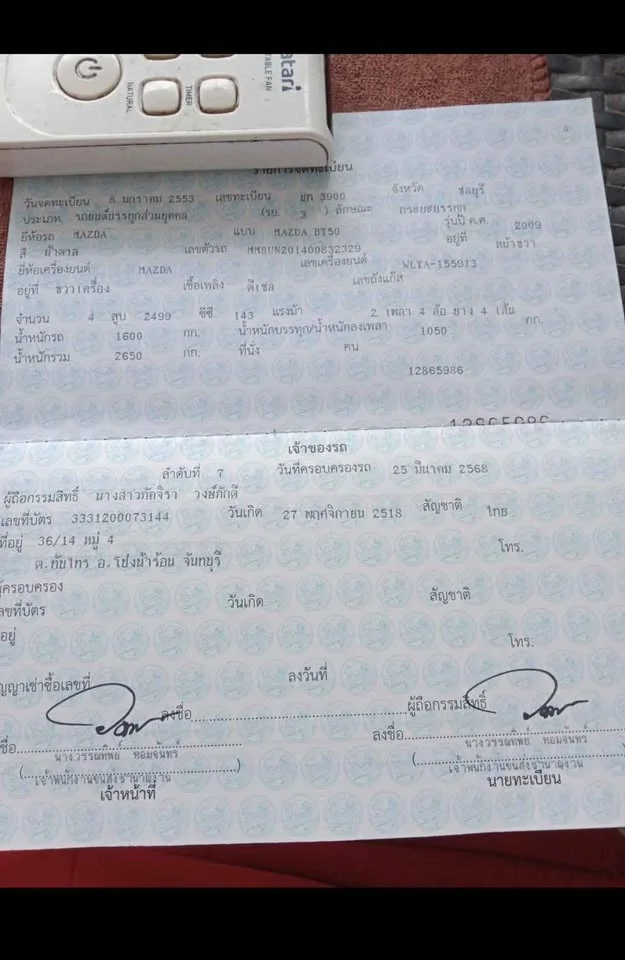 atari
ABLE FAN
TIMER
NATURAL
รายการจดทะเบียน
วันจดทะเบียน 8 มกราคม 2553 เลขทะเบียน ยก 3900 จังหวัด ชลบุรี
ประเภท รถยนต์บรรทุกส่วนบุคคล (รย. 3 ) ลักษณะ กระบะบรรทุก
ยี่ห้อรถ MAZDA แบบ MAZDA BT50 รุ่นปี ค.ศ. 2009
สี น้ำตาล เลขตัวรถ MM8UN201400832329 อยู่ที่ หน้าขวา
ยี่ห้อเครื่องยนต์ MAZDA เลขเครื่องยนต์ WLTA-155913
อยู่ที่ ขวาเครื่อง เชื้อเพลิง ดีเซล เลขถังแก๊ส
จำนวน 4 สูบ 2499 ซีซี 143 แรงม้า 2 เพลา 4 ล้อ ยาง 4 เส้น
น้ำหนักรถ 1600 กก. น้ำหนักบรรทุก/น้ำหนักลงเพลา 1050 กก.
น้ำหนักรวม 2650 กก. ที่นั่ง คน
12865986
12865986
เจ้าของรถ
ลำดับที่ 7 วันที่ครอบครองรถ 25 มีนาคม 2568
ผู้ถือกรรมสิทธิ์ นางสาวภัคจิรา วงษ์ภักดี
เลขที่บัตร 3331200073144 วันเกิด 27 พฤศจิกายน 2518 สัญชาติ ไทย
ที่อยู่ 36/14 หมู่ 4
ต.ทับไทร อ.โป่งน้ำร้อน จันทบุรี โทร.
ผู้ครอบครอง
เลขที่บัตร วันเกิด สัญชาติ
อยู่
โทร.
ญญาเช่าซื้อเลขที่ ลงวันที่
ลงชื่อ ผู้ถือกรรมสิทธิ์
ชื่อ ลงชื่อ
นางวรรณทิพย์ หอมจันทร์ นางวรรณทิพย์ หอมจันทร์
(เจ้าพนักงานขนส่งชำนาญงาน) (เจ้าพนักงานขนส่งชำนาญงาน)
เจ้าหน้าที่ นายทะเบียน